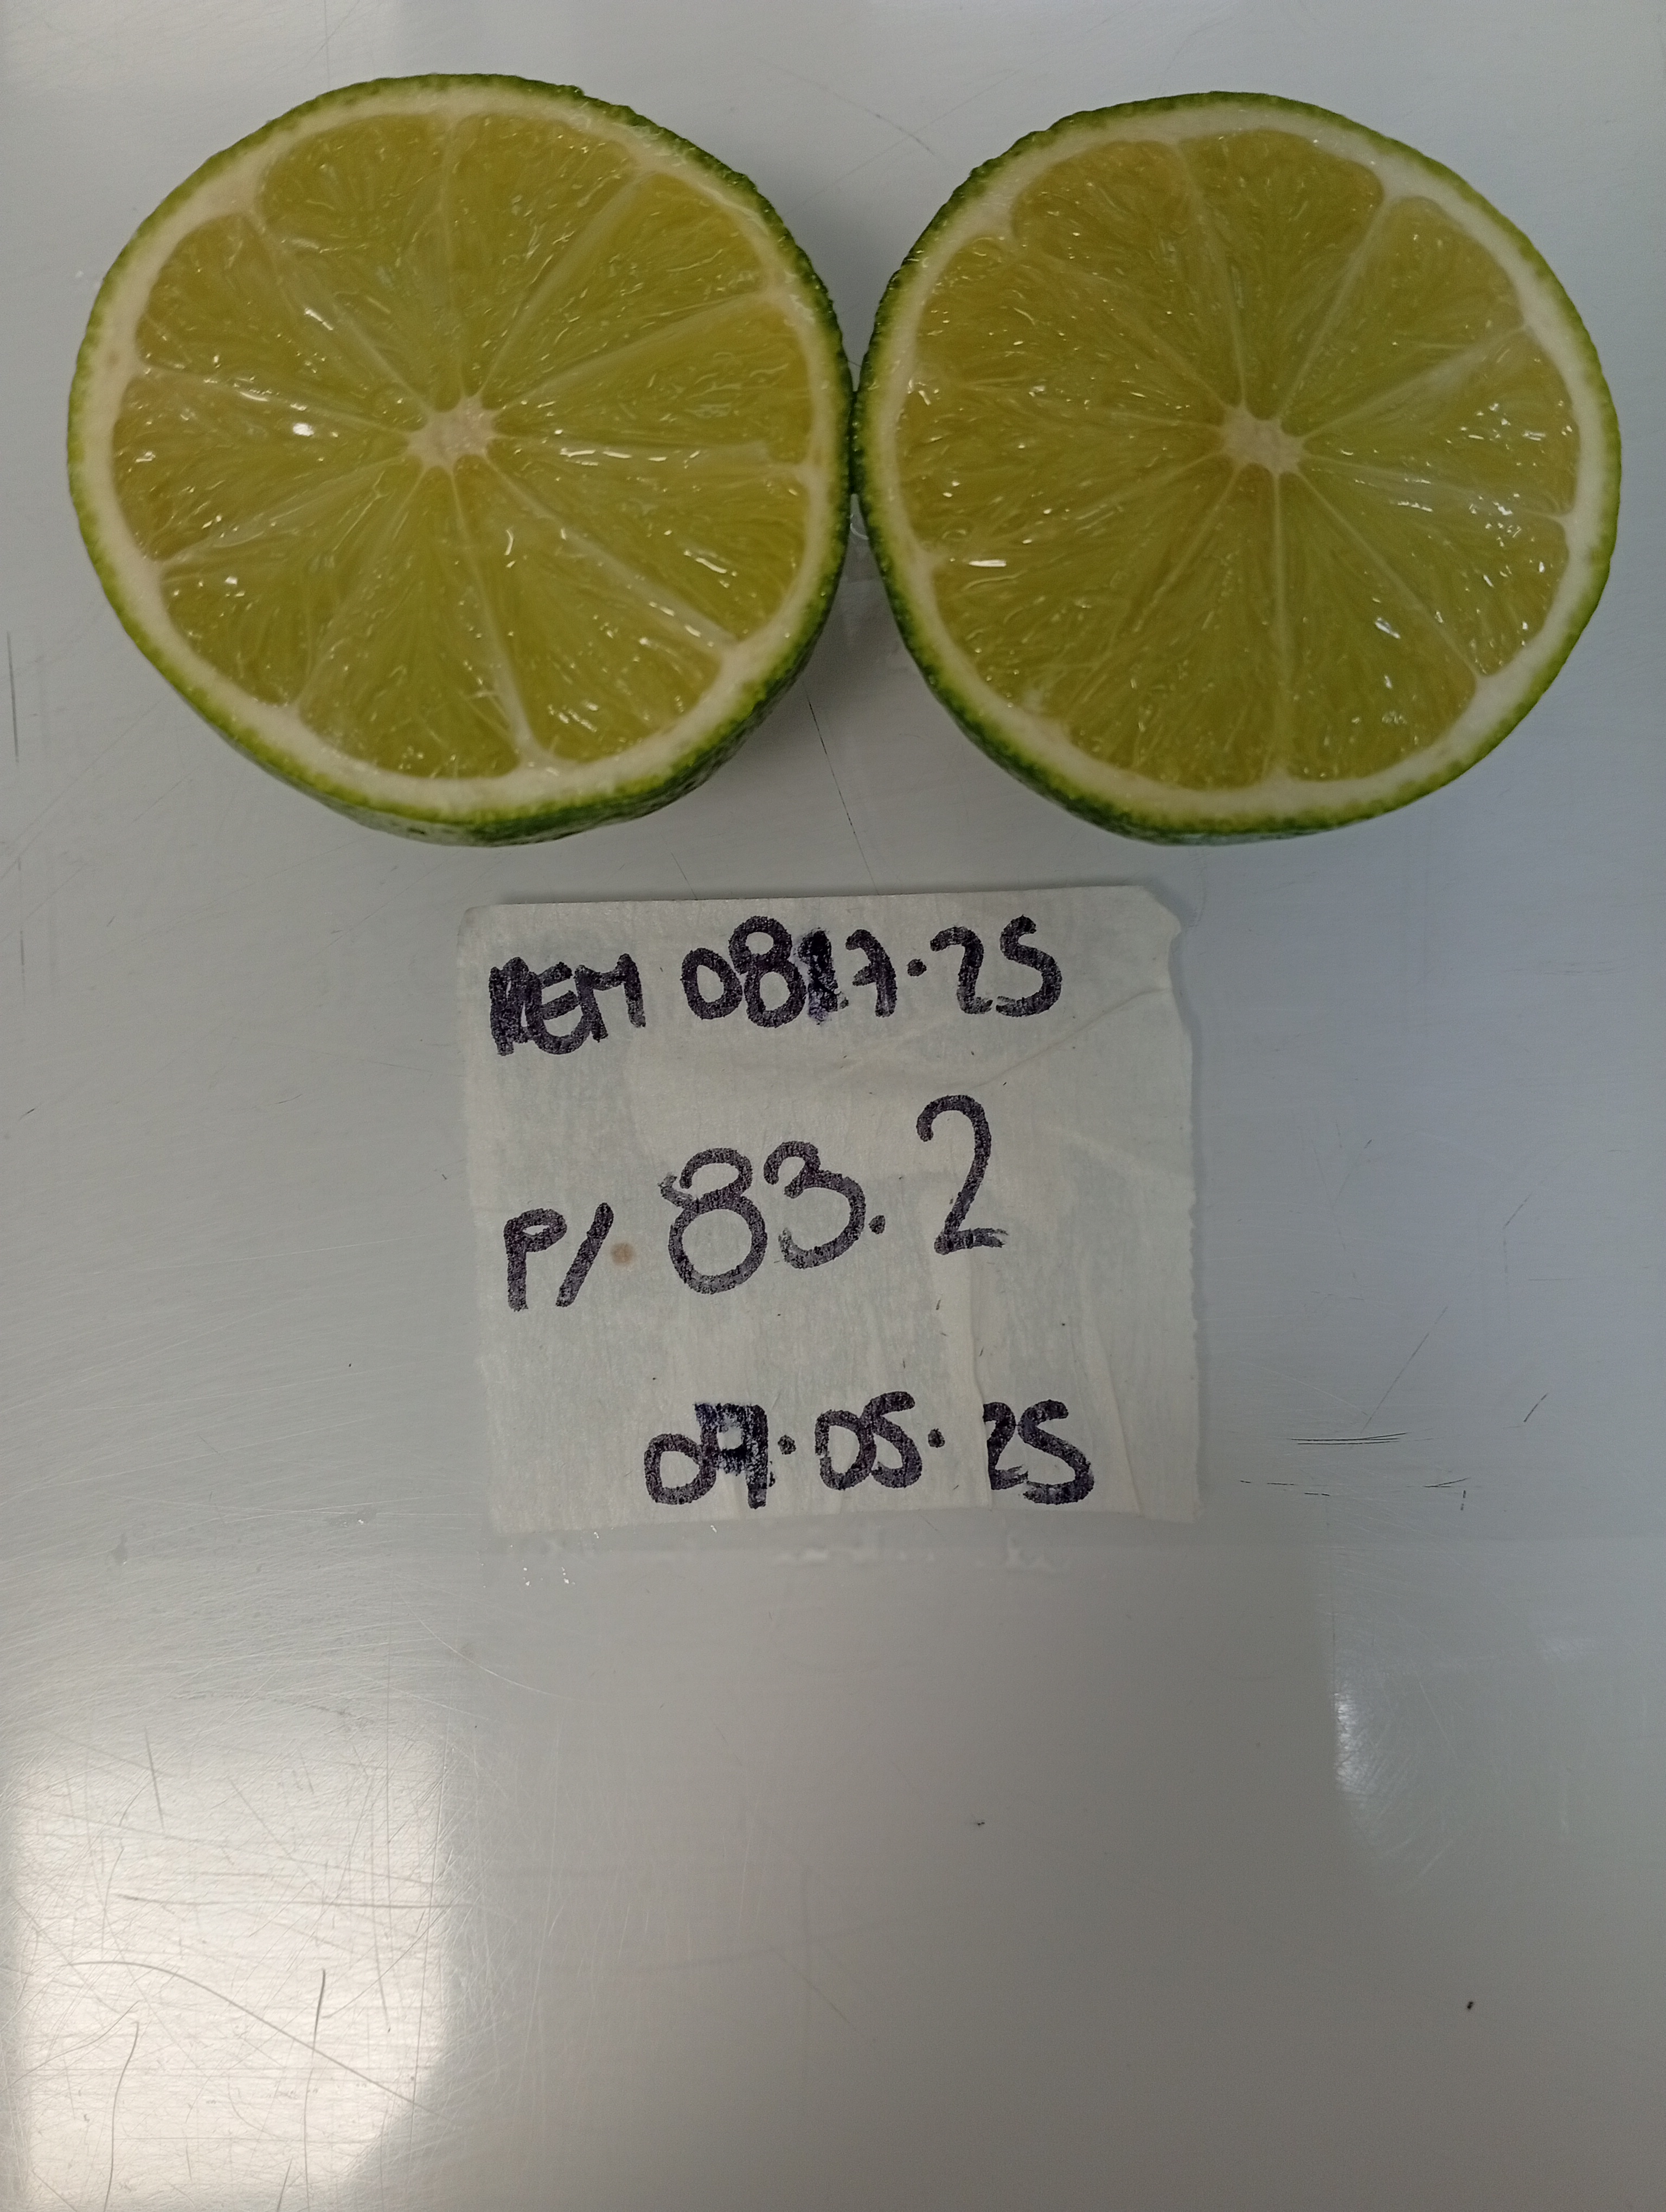 REM 0817.25
P/ 83.2
07.05.25